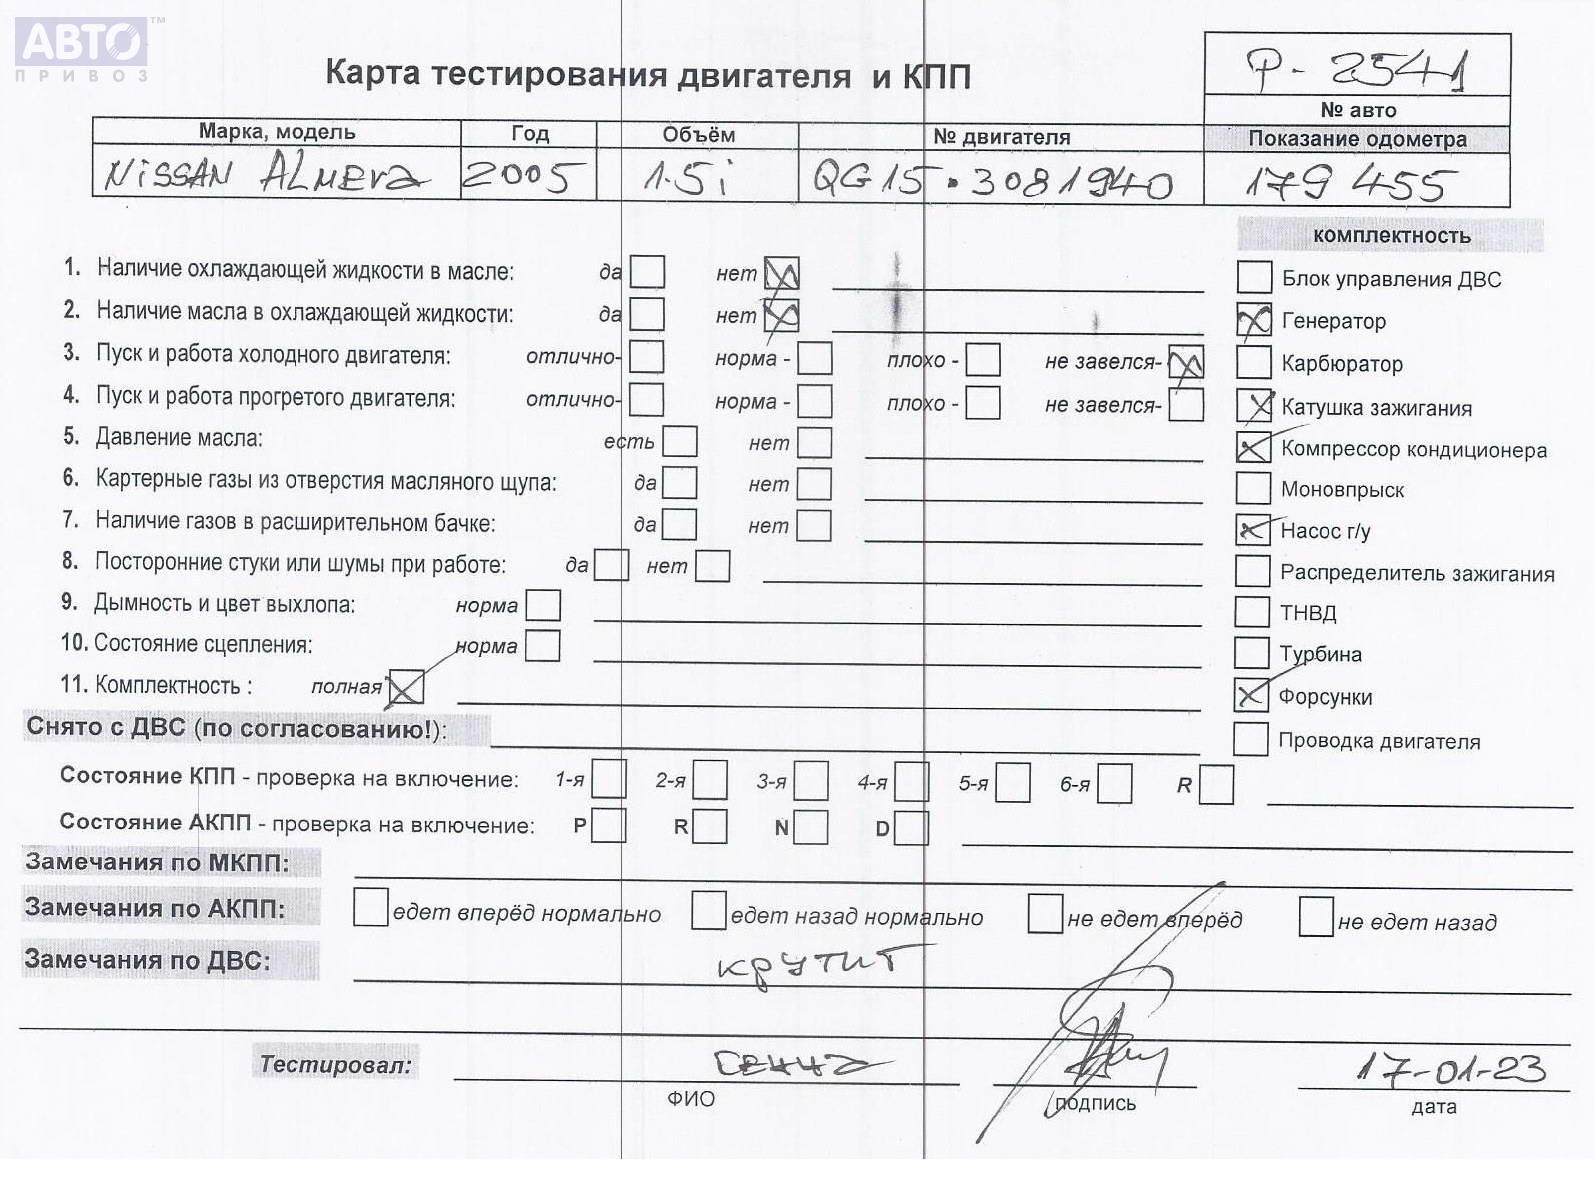 АВТО™
ПРИВОЗ
Карта тестирования двигателя и КПП
Р- 2541
№ авто
Марка, модель Год Объём № двигателя Показание одометра
NiSSAN ALMERA 2005 1.5i QG15·3081940 179 455
комплектность
1. Наличие охлаждающей жидкости в масле: да нет
Блок управления ДВС
2. Наличие масла в охлаждающей жидкости: да нет
Генератор
3. Пуск и работа холодного двигателя: отлично- норма - плохо - не завелся-
Карбюратор
4. Пуск и работа прогретого двигателя: отлично- норма - плохо - не завелся-
Катушка зажигания
5. Давление масла: есть нет
Компрессор кондиционера
6. Картерные газы из отверстия масляного щупа: да нет
Моновпрыск
7. Наличие газов в расширительном бачке: да нет
Насос г/у
8. Посторонние стуки или шумы при работе: да нет
Распределитель зажигания
9. Дымность и цвет выхлопа: норма
ТНВД
10. Состояние сцепления: норма
Турбина
11. Комплектность : полная
Форсунки
Снято с ДВС (по согласованию!):
Проводка двигателя
Состояние КПП - проверка на включение: 1-я 2-я 3-я 4-я 5-я 6-я R
Состояние АКПП - проверка на включение: P R N D
Замечания по МКПП:
Замечания по АКПП: едет вперёд нормально едет назад нормально не едет вперёд не едет назад
Замечания по ДВС: крутит
Тестировал: 17-01-23
ФИО подпись дата